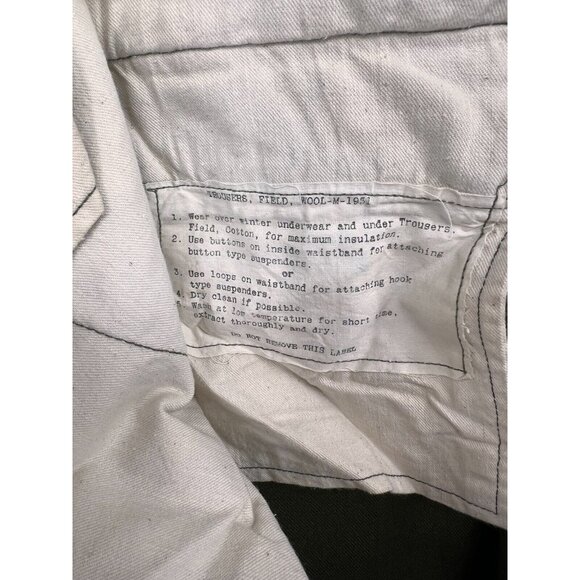 TROUSERS, FIELD, WOOL-M-1951
1. Wear over winter underwear and under Trousers.
Field, Cotton, for maximum insulation.
2. Use buttons on inside waistband for attaching
button type suspenders.
or
3. Use loops on waistband for attaching hook
type suspenders.
4. Dry clean if possible.
5. Wash at low temperature for short time.
extract thoroughly and dry.
DO NOT REMOVE THIS LABEL